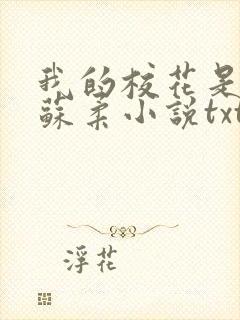 我的校花是
蘇柔小說txt
浮花